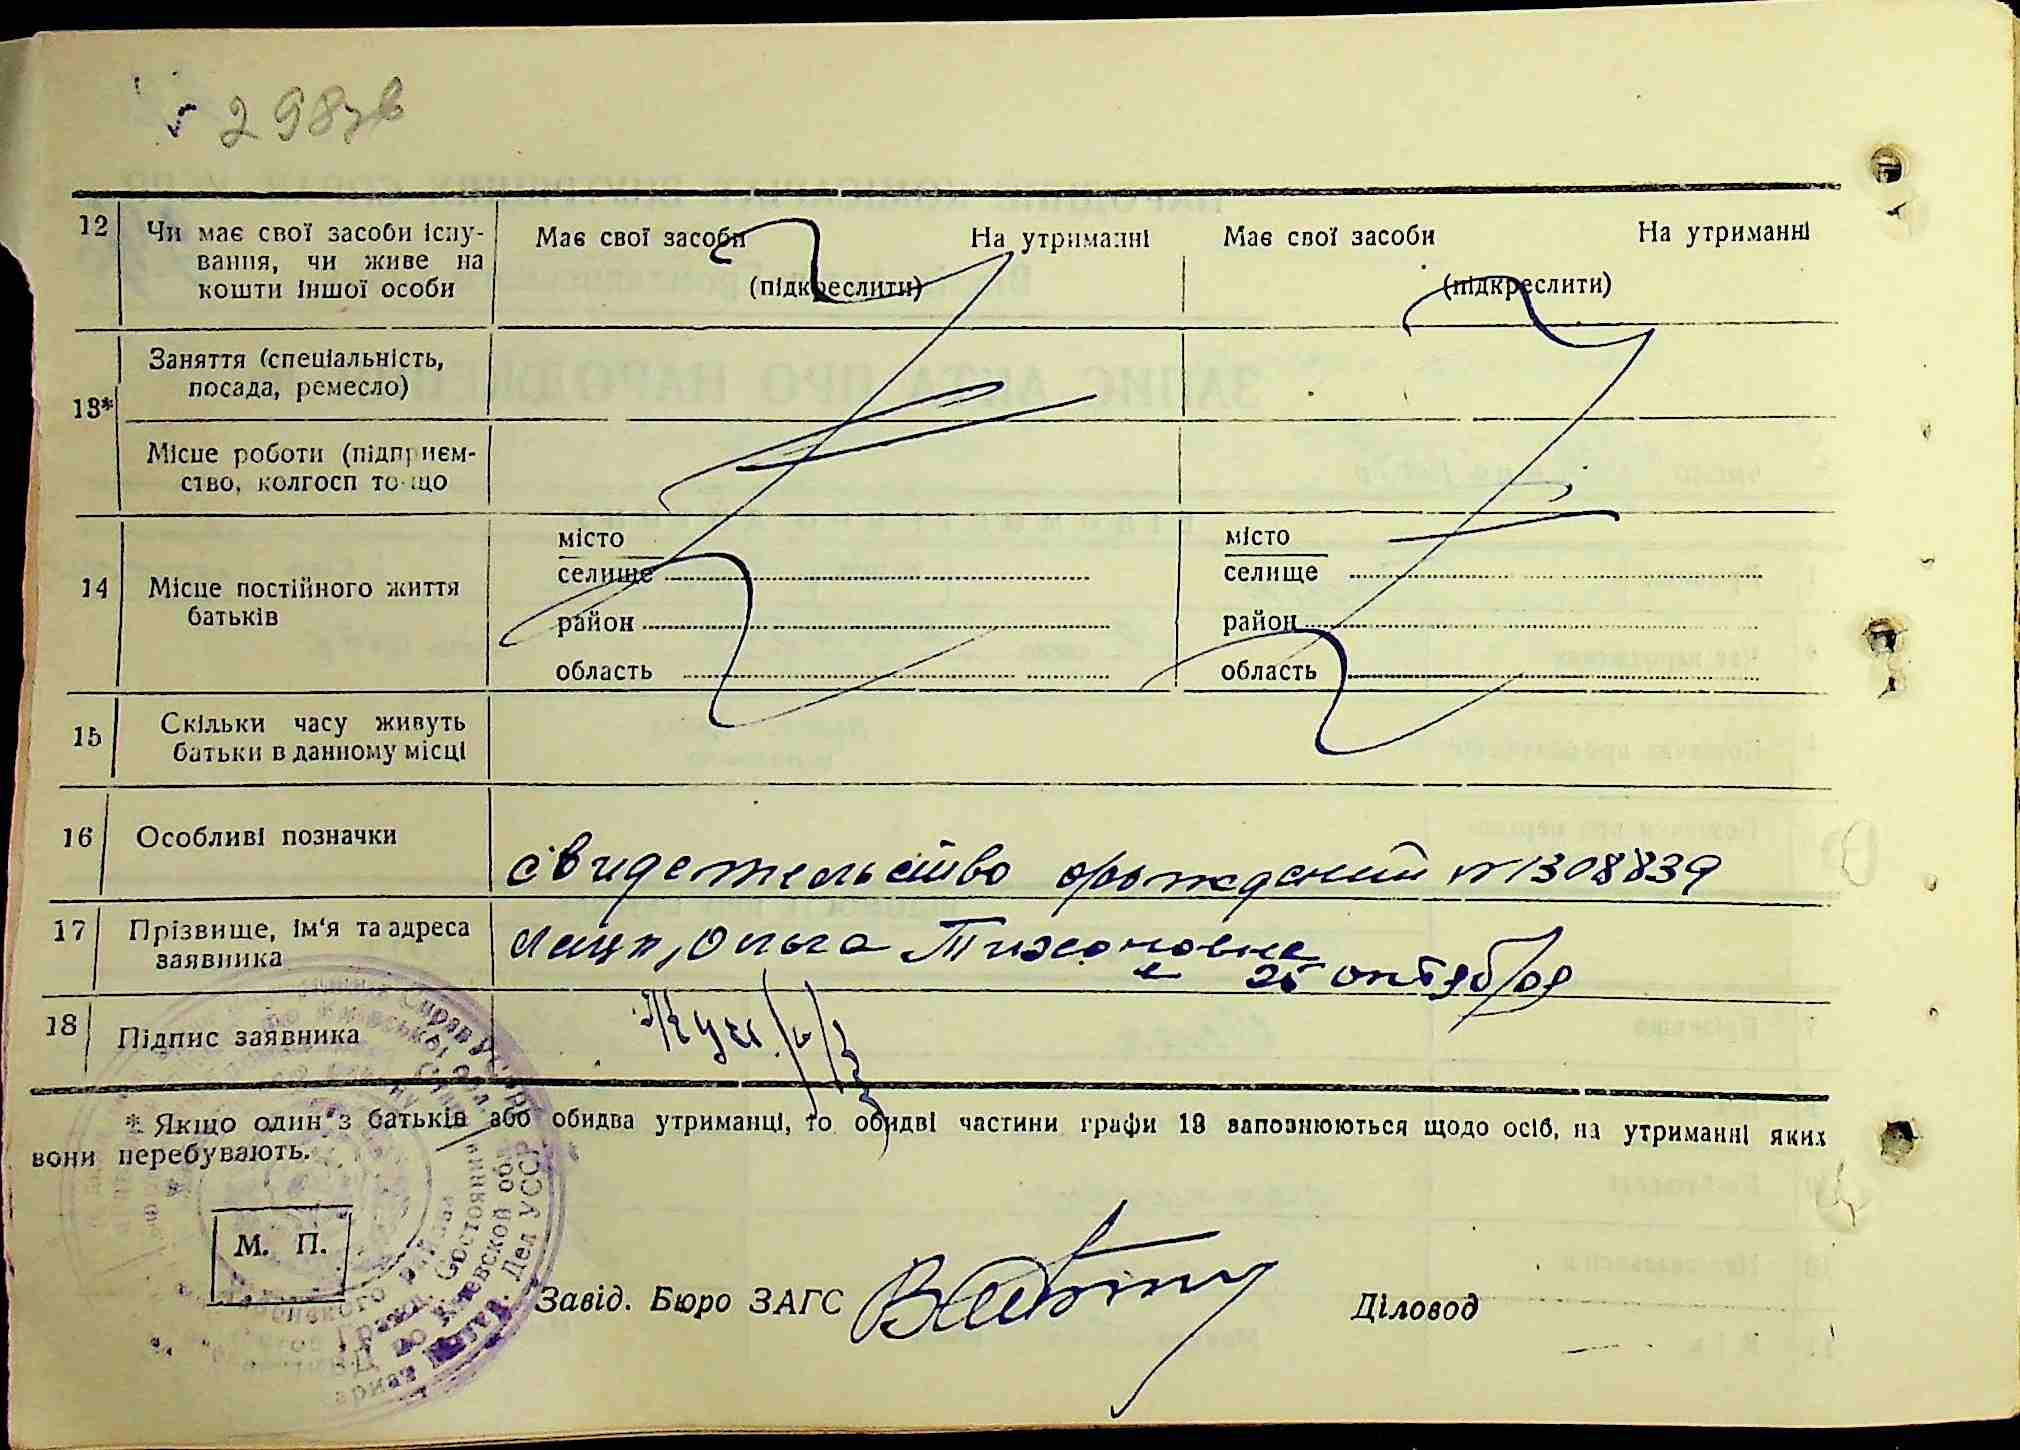 298зв
12 Чи має свої засоби існу-
вання, чи живе на
кошти іншої особи
Має свої засоби На утриманні
(підкреслити)
Має свої засоби На утриманні
(підкреслити)
13* Заняття (спеціальність,
посада, ремесло)
Місце роботи (підприєм-
ство, колгосп тощо
14 Місце постійного життя
батьків
місто
селище
район
область
місто
селище
район
область
15 Скільки часу живуть
батьки в данному місці
16 Особливі позначки
свидетельство орождений №1308839
17 Прізвище, ім'я та адреса
заявника
Ольга Тихоновна
25 октяб/
18 Підпис заявника
* Якщо один з батьків або обидва утриманці, то обидві частини графи 13 заповнюються щодо осіб, на утриманні яких
вони перебувають.
М. П.
Завід. Бюро ЗАГС
Діловод